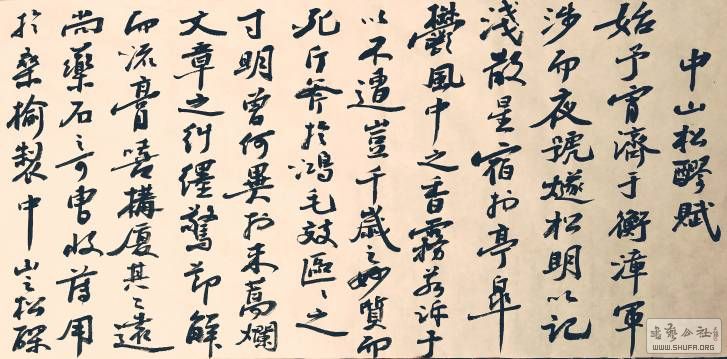 中山松醪賦
始予宵濟于衡漳軍
涉而夜號燧松明以記
淺散星宿於亭皐
鬱風中之香霧若訴予
以不遭豈千歲之妙質而
死斤斧於鴻毛效區區之
寸明曾何異於束蒿爛
文章之糾纆驚節解
而流膏嘻構廈其已遠
尚藥石之可曹收薄用
於桑榆製中山之松醪
WWW.SHUFA.ORG